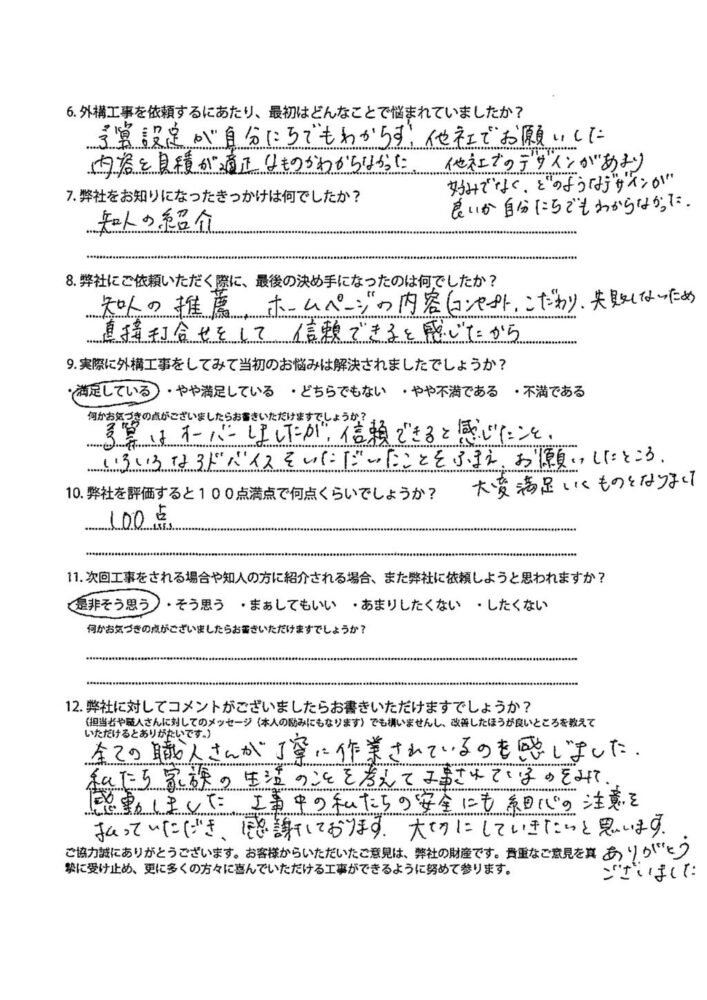 6. 外構工事を依頼するにあたり、最初はどんなことで悩まれていましたか？
予算設定が自分たちでもわからず、他社でお願いした
内容と見積が適正なものかわからなかった。他社でのデザインがあまり
好みでなく、どのようなデザインが
良いか自分たちでもわからなかった。
7. 弊社をお知りになったきっかけは何でしたか？
知人の紹介
8. 弊社にご依頼いただく際に、最後の決め手になったのは何でしたか？
知人の推薦、ホームページの内容（コンセプト、こだわり、失敗しないため
直接打合せをして 信頼できると感じたから
9. 実際に外構工事をしてみて当初のお悩みは解決されましたでしょうか？
・満足している ・やや満足している ・どちらでもない ・やや不満である ・不満である
何かお気づきの点がございましたらお書きいただけますでしょうか？
予算はオーバーしましたが、信頼できると感じたこと、
いろいろなアドバイスをいただいたことをふまえ、お願いしたところ、
大変満足いくものとなりまして
10. 弊社を評価すると１００点満点で何点くらいでしょうか？
100点
11. 次回工事をされる場合や知人の方に紹介される場合、また弊社に依頼しようと思われますか？
・是非そう思う ・そう思う ・まぁしてもいい ・あまりしたくない ・したくない
何かお気づきの点がございましたらお書きいただけますでしょうか？
12. 弊社に対してコメントがございましたらお書きいただけますでしょうか？
（担当者や職人さんに対してのメッセージ（本人の励みにもなります）でも構いませんし、改善したほうが良いところを教えて
いただけるとありがたいです。）
全ての職人さんが丁寧に作業されているのを感じました。
私たち家族の生活のことを考えて工事されているのをみて、
感動しました。工事中の私たちの安全にも細心の注意を
払っていただき、感謝しております。大切にしていきたいと思います。
ありがとう
ございました
ご協力誠にありがとうございます。お客様からいただいたご意見は、弊社の財産です。貴重なご意見を真
摯に受け止め、更に多くの方々に喜んでいただける工事ができるように努めて参ります。